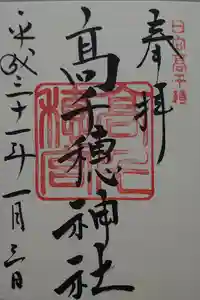 奉拝
日向高千穂
髙千穂神社
平成三十一年一月三日